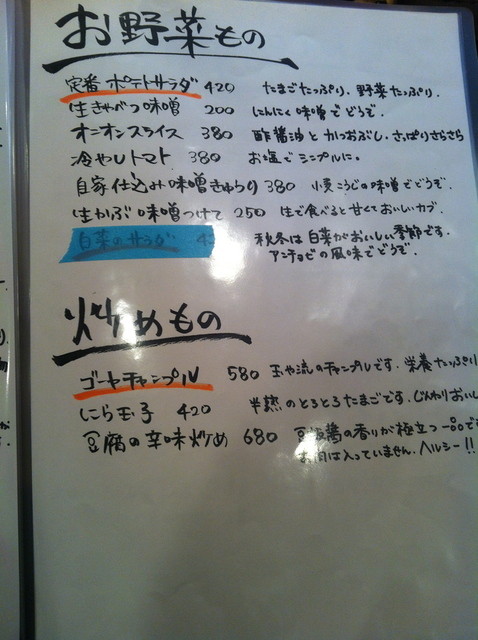 お野菜もの
定番 ポテトサラダ 420 たまごたっぷり、野菜たっぷり。
生きゃべつ味噌 200 にんにく味噌でどうぞ。
オニオンスライス 380 酢醤油とかつおぶし、さっぱりさらさら
冷やしトマト 380 お塩でシンプルに。
自家仕込み味噌きゅうり 380 小麦こうじの味噌でどうぞ。
生かぶ 味噌つけて 250 生で食べると甘くておいしいカブ。
白菜のサラダ 42 秋冬は白菜がおいしい季節です。
アンチョビの風味でどうぞ。
炒めもの
ゴーヤチャンプル 580 玉や流のチャンプルです。栄養たっぷり
にら玉子 420 半熟のとろとろたまごです。じんわりおいし
豆腐の辛味炒め 680 豆板醤の香りが極立つ一品です
お肉は入っていません。ヘルシー!!